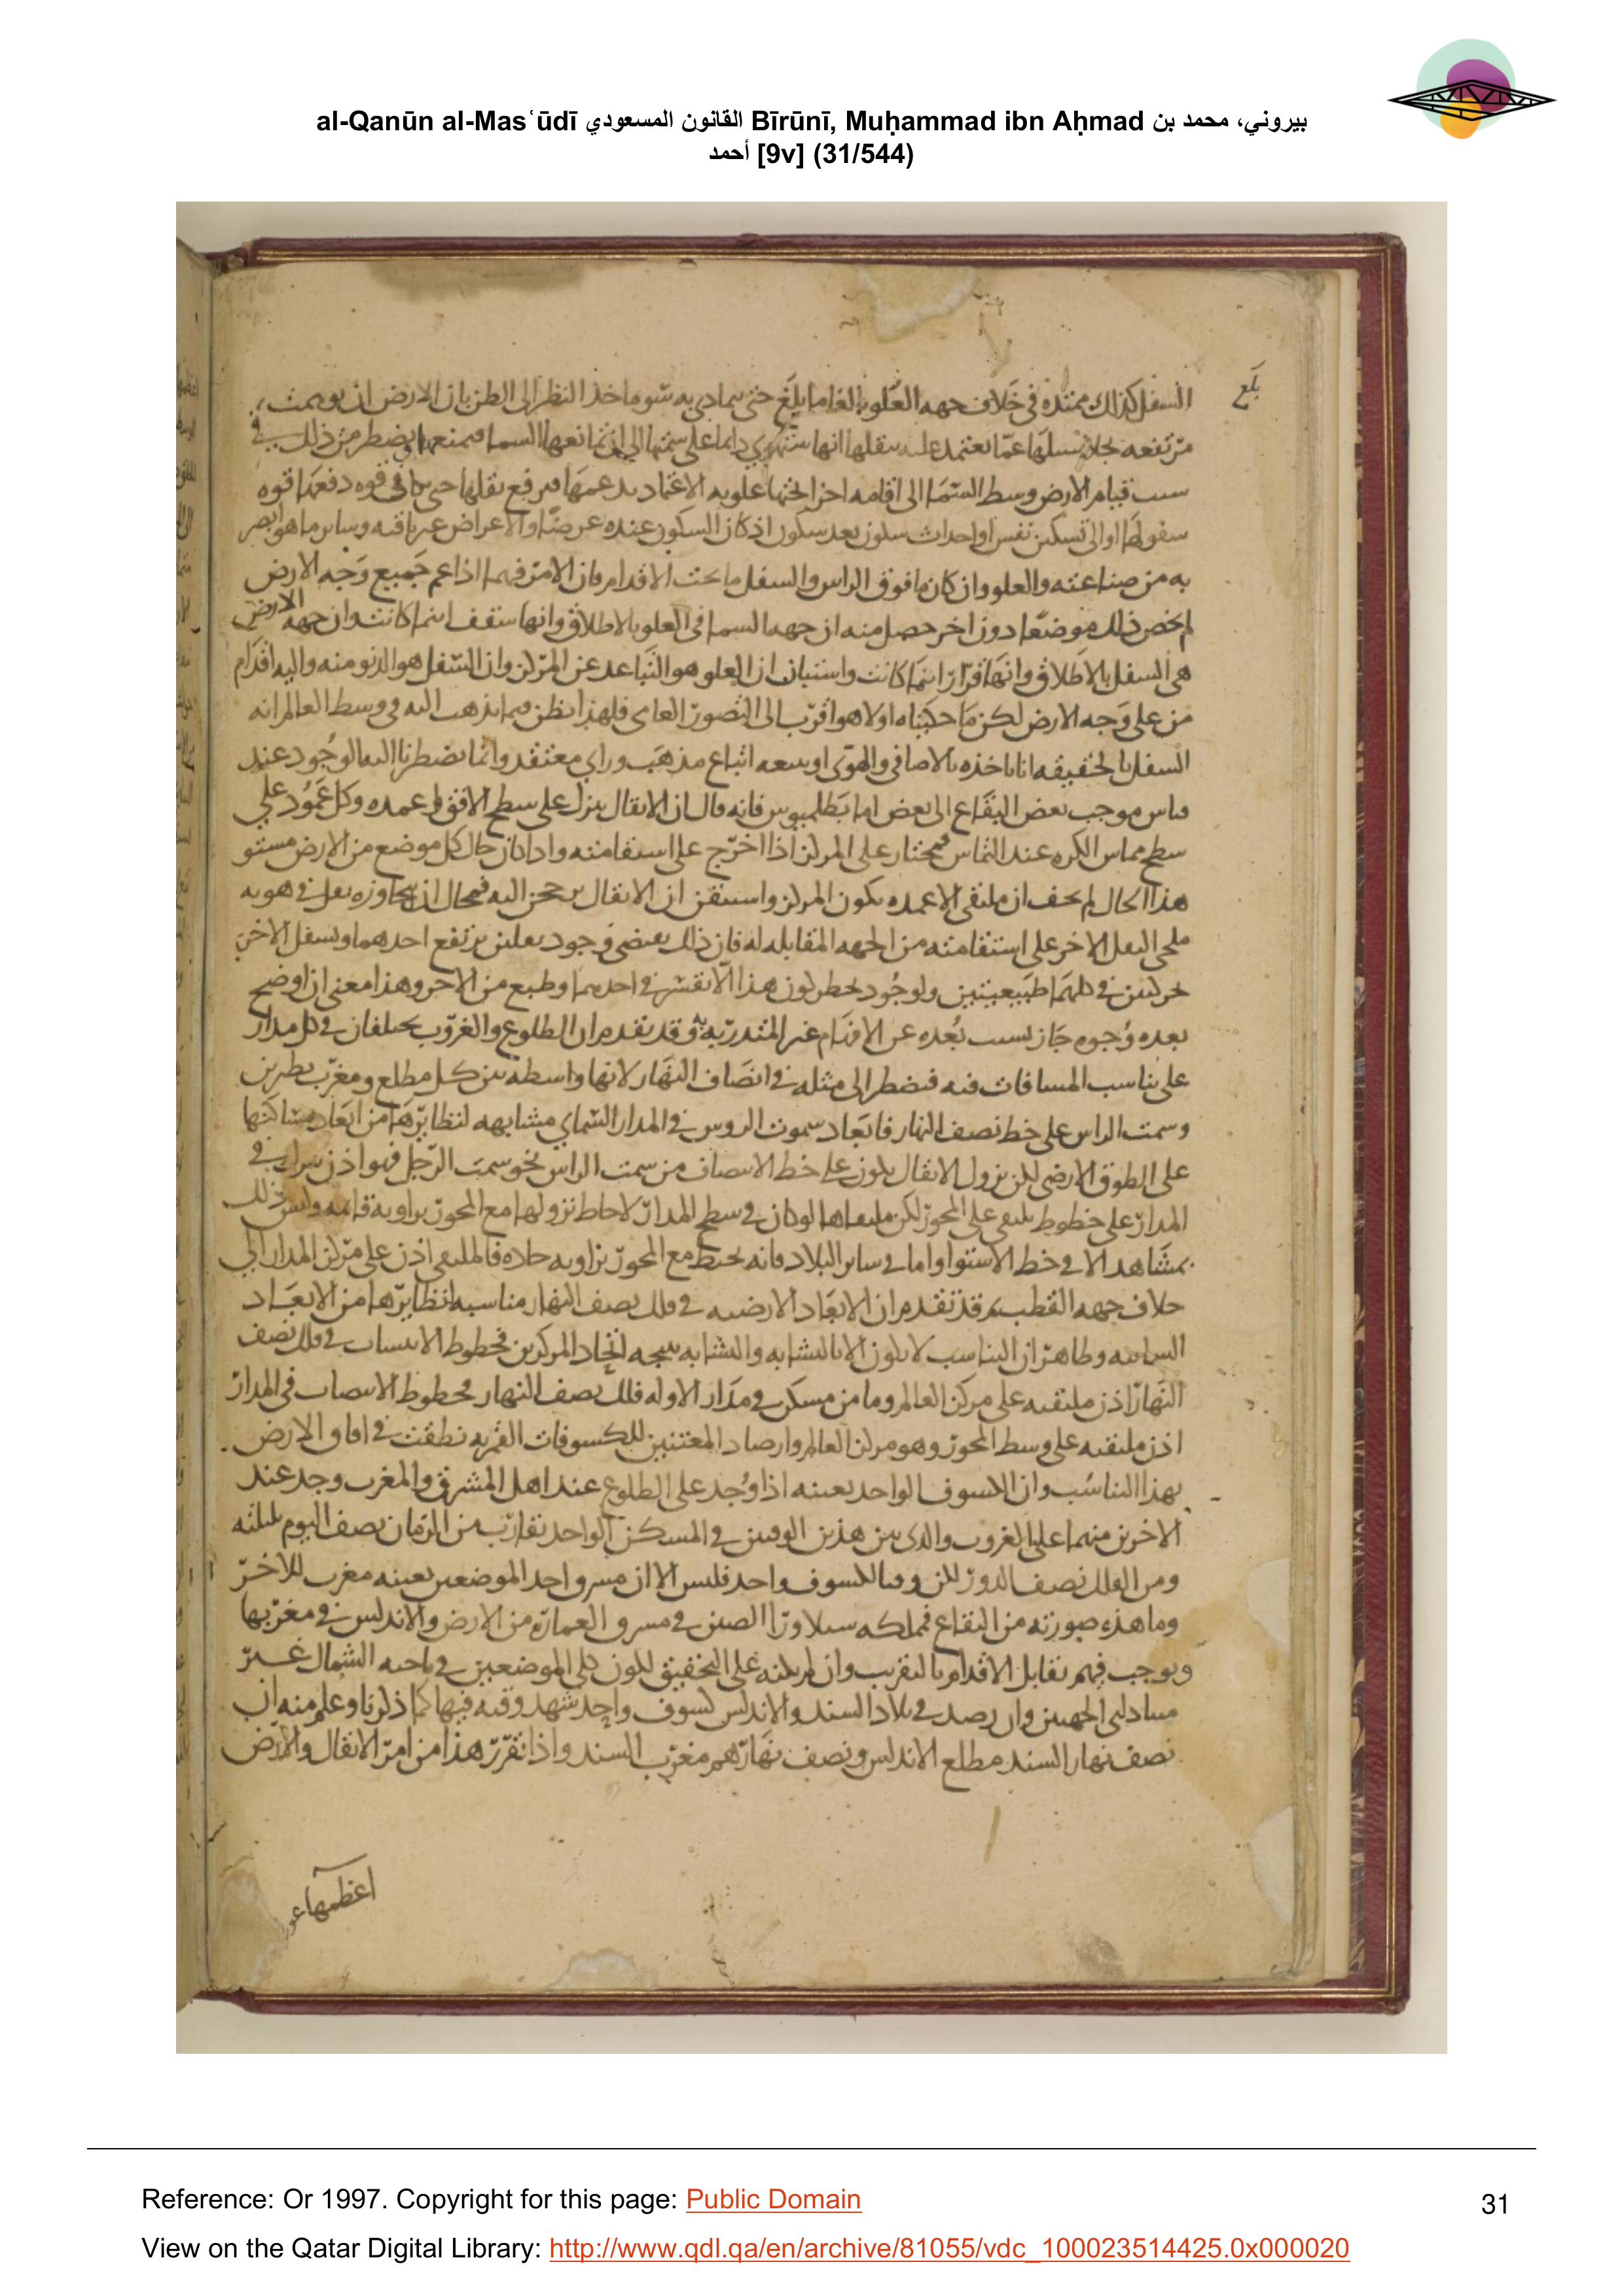 al-Qanūn al-Masʿūdī القانون المسعودي Bīrūnī, Muḥammad ibn Aḥmad بيروني، محمد بن
أحمد [9v] (31/544)
بلغ
السفل كذلك ممتده فى خلاف جهه العلو بالغا ما بلغ حتى يمادى به سوماخذ النظر الى الظن بان الارض ان توهمت
مرتفعه عما يعتمد عليه بثقلها انها دايما على سمتها الى ان تمانعها السما فيضطر من ذلك فى
سبب قيام الارض وسط السما الى اقامه علويه الاعتماد قوه
سقوطها او الى تسكين نفس او احداث سكون بعد سكون اذ كان السكون عنده عرضا والاعراض غير باقيه وساير ما هو ابصر
به من صناعته والعلو وان كان ما فوق الراس والسفل ما تحت الاقدام فان الامر فيهما اذا عم جميع وجه الارض
لم يخص ذلك موضعا دون اخر حصل منه ان جهه السما فى العلو بالاطلاق وانها سقف اينما كانت وان جهه الارض
هى السفل بالاطلاق وانها قرار اينما كانت واستبان ان العلو هو التباعد عن المركز وان السفل هو الدنو منه واليه اقدام
من على وجه الارض لكن ما حكيناه اولا هو اقرب الى التصور العامى فلهذا يظن فيما نذهب اليه فى وسط العالم انه
السفل بالحقيقه انا ناخذه بالاصافى والهوى او بيعه اتباع مذهب وراى معتقد وانما يضطرنا اليه الوجود عند
قياس موجب بعض البقاع الى بعض اما بطلميوس فانه قال ان الاثقال ينزل على سطح الافق على عمده وكل عمود على
سطح مماس الكره عند التماس فمجتاز على المركز اذا اخرج على استقامته واذا كان حال كل موضع من الارض مستو
هذا الحال لم يخف ان ملتقى الاعمده يكون المركز واستيقن ان الاثقال اليه فمحال ان يجاوزه ثقل فى هويه
الثقل الاخر على استقامته من الجهه المقابله له فان ذلك يقتضى وجود ثقلين يرتفع احدهما ويسفل الاخر
حركتين فى كليهما طبيعيتين ولوجود خطر لون هذا فى احدهما وطبع من الاخر وهذا معنى ان اوضح
بعده وجوه جاز بسبب بعده عن الافهام غير المتدربه وقد تقدم ان الطلوع والغروب يختلفان فى كل مدار
على تناسب المسافات فيه فيضطر الى مثله فى انصاف النهار لانها واسطه بين كل مطلع ومغرب نظيرين
وسمت الراس على خط نصف النهار فابعاد سموت الروس فى المدار السماى مشابهه لنظايرها من ابعاد مساكنها
على الطوق الارضى لكن نزول الاثقال يكون على خط الانتصاب من سمت الراس نحو سمت الرجل فهو اذن فى
المدار على خطوط يلتقى على المحور لكن ملتقاها لو كان فى سطح المدار لاحاط نزولها مع المحور بزاويه قائمه وليس ذلك
بمشاهد الا فى خط الاستوا واما فى ساير البلاد فانه يحيط مع المحور بزاويه حاده فالملتقى اذن على مركز المدار الى
خلاف جهه القطب ثم قد تقدم ان الابعاد الارضيه فى فلك نصف النهار مناسبه لنظايرها من الابعاد
السمائيه وظاهر ان التناسب لا يكون الا بالتشابه والتشابه ينتجه اتحاد المركزين فخطوط الانتصاب فى فلك نصف
النهار اذن ملتقيه على مركز العالم وما من مسكن فى مدار الا وله فلك نصف النهار فخطوط الانتصاب فى المدار
اذن ملتقيه على وسط المحور وهو مركز العالم وارصاد المعتنين للكسوفات القمريه نطقت فى افاق الارض
بهذا التناسب وان الكسوف الواحد بعينه اذا وجد على الطلوع عند اهل المشرق والمغرب وجد عند
الاخرين منهما على الغروب والذى بين هذين الوقتين فى المسكن الواحد تقارب من الزمان نصف اليوم بليلته
ومن الفلك نصف الدور لكن وقتا لكسوف واحد فليس الا ان مشرق احد الموضعين بعينه مغرب للاخر
وما هذه صورته من البقاع فمملكه سيلا ورا الصين فى مشرق العماره من الارض والاندلس فى مغربها
ويوجب فيهم تقابل الاقدام بالتقريب وان لم يكنه على التحقيق لكون كلى الموضعين فى ناحيه الشمال غير
متبادلى الجهتين وان رصد فى بلاد السند والاندلس كسوف واحد شهد وقته فيها كما ذكرنا وعلم منه ان
نصف نهار السند مطلع الاندلس ونصف نهارهم مغرب السند واذا تقرر هذا من امر الاثقال والارض
اعظمها
Reference: Or 1997. Copyright for this page: Public Domain
31
View on the Qatar Digital Library: http://www.qdl.qa/en/archive/81055/vdc_100023514425.0x000020